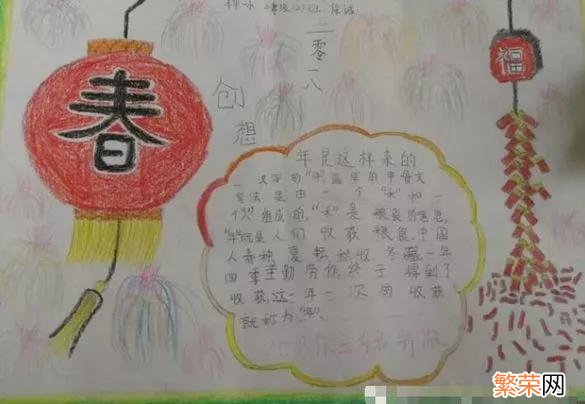 二零一八
创想
春
福
年是这样来的
汉字的"年"最早的甲骨文
写法是由一个"禾"和一
个"人"组成的,"禾"是粮食的意思,
"年"就是人们收获粮食。中国
人春种、夏耘、秋收、冬藏,一年
四季辛勤劳作终于得到了
收获,这一年一次的收获
就称为"年"。
繁荣网